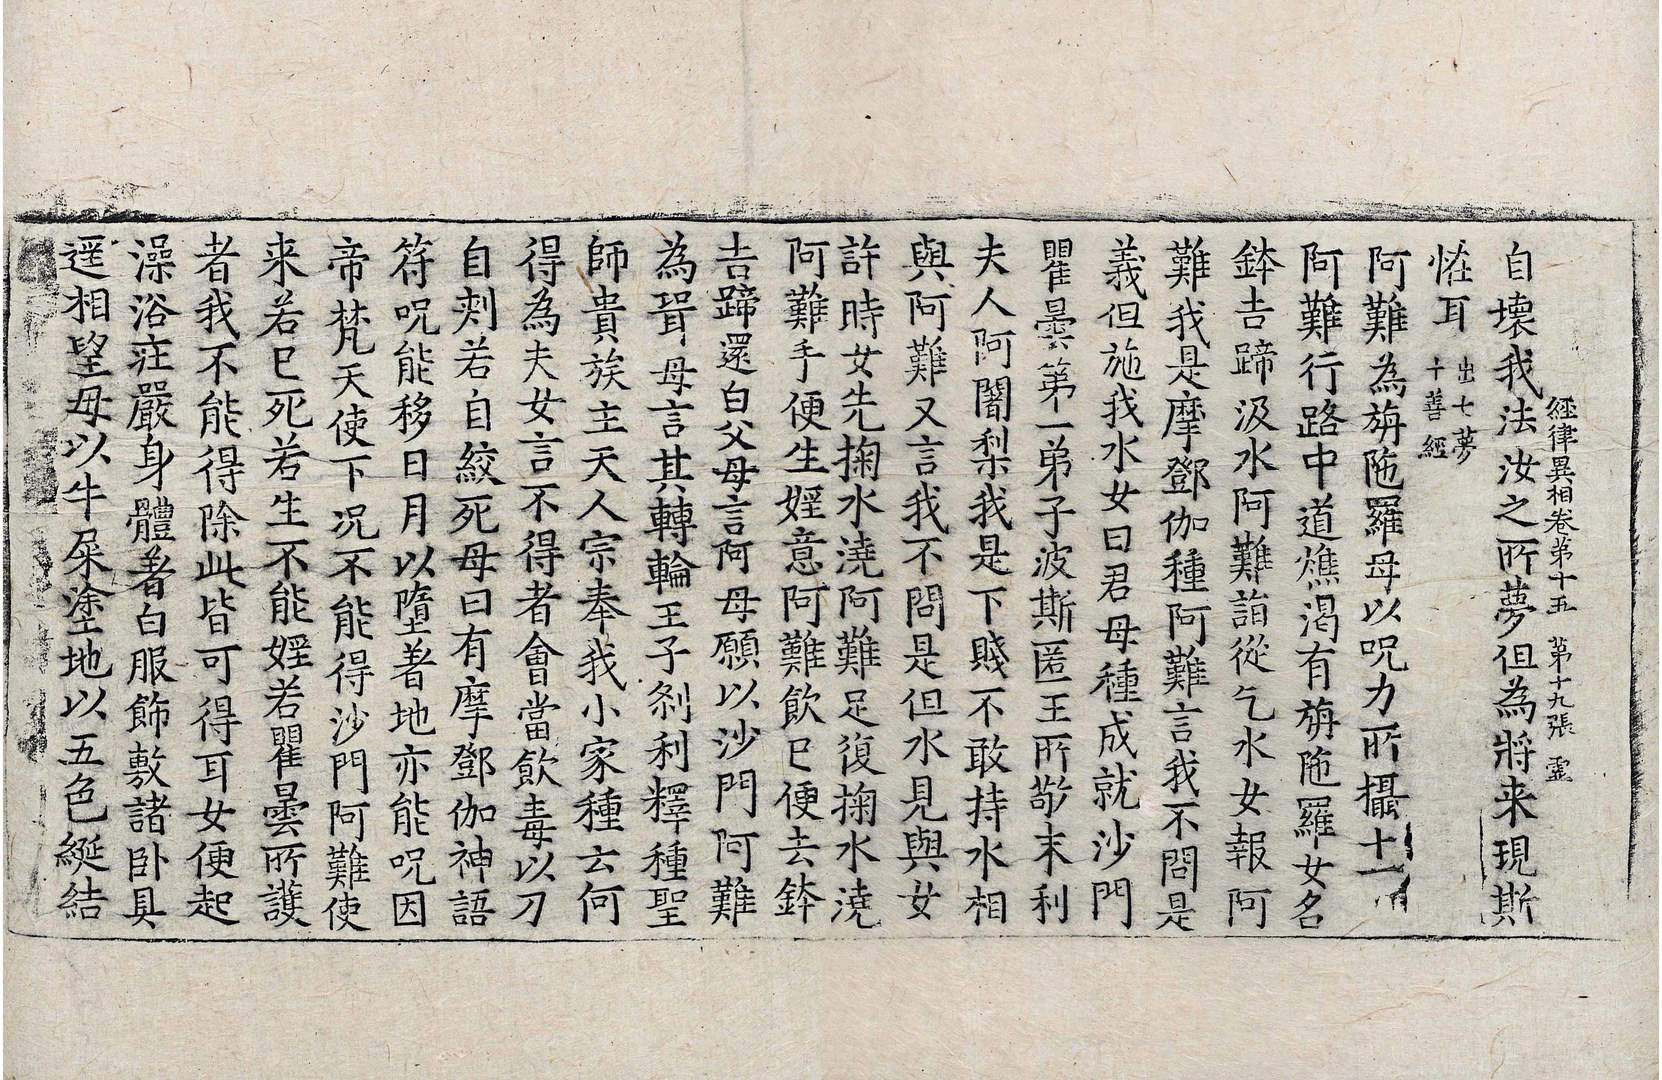 經律異相卷第十五 第十九張 靈
自壞我法汝之所夢但為將来現斯
恠耳 出七夢十善經
阿難為旃陁羅母以呪力所攝十一
阿難行路中道燋渴有旃陁羅女名
鉢吉蹄汲水阿難詣從乞水女報阿
難我是摩鄧伽種阿難言我不問是
義但施我水女曰君母種成就沙門
瞿曇第一弟子波斯匿王所敬末利
夫人阿闍梨我是下賤不敢持水相
與阿難又言我不問是但水見與女
許時女先掬水澆阿難足復掬水澆
阿難手便生婬意阿難飲已便去鉢
吉蹄還白父母言阿母願以沙門阿難
為聟母言其轉輪王子剎利釋種聖
師貴族主天人宗奉我小家種云何
得為夫女言不得者會當飲毒以刀
自刾若自絞死母曰有摩鄧伽神語
符呪能移日月以墮著地亦能呪因
帝梵天使下况不能得沙門阿難使
来若已死若生不能婬若瞿曇所護
者我不能得除此皆可得耳女便起
澡浴莊嚴身體著白服飾敷諸卧具
遥相望母以牛屎塗地以五色綖結